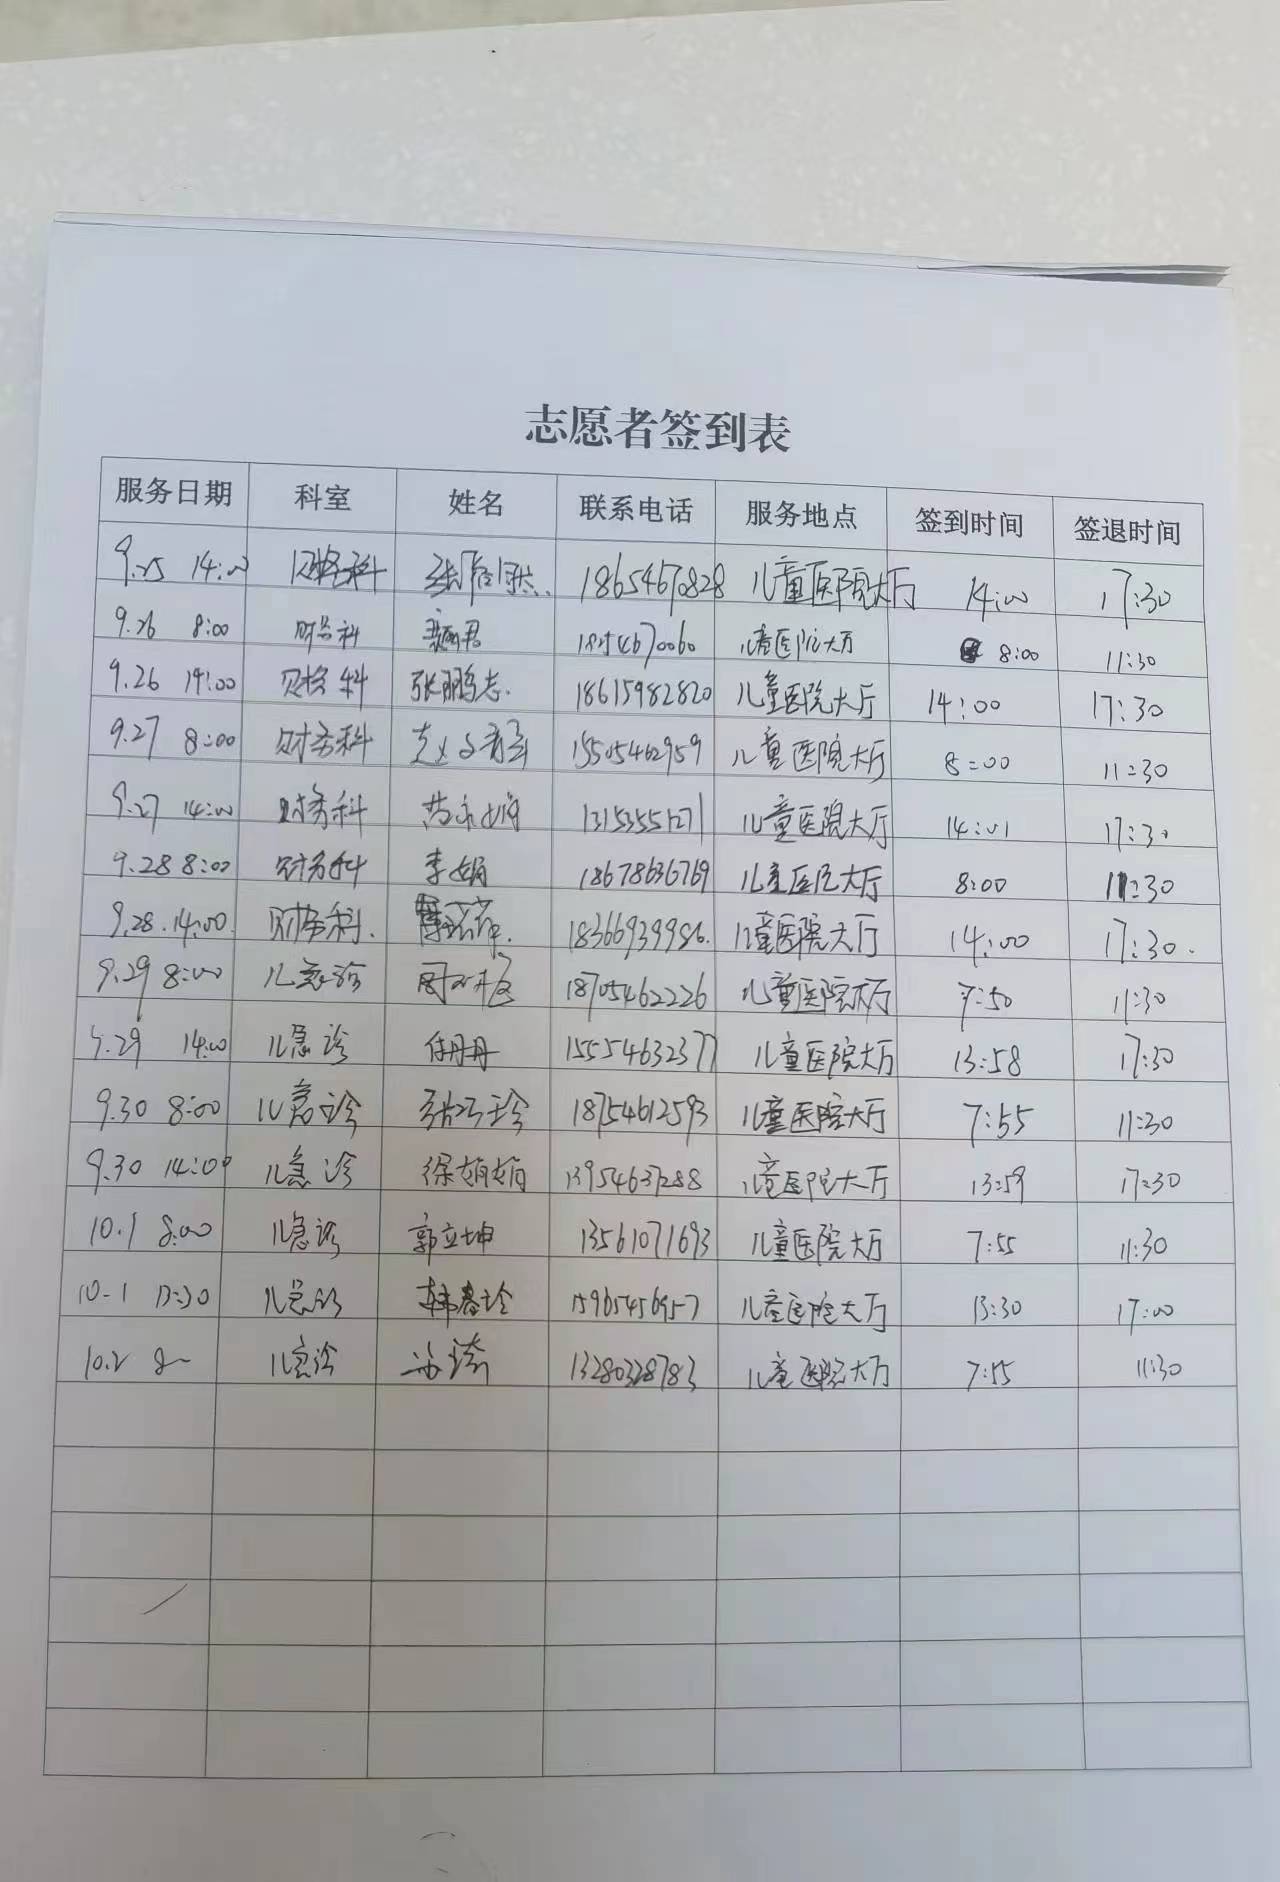 志愿者签到表
服务日期 科室 姓名 联系电话 服务地点 签到时间 签退时间
9.25 14:00 财务科 18654670828 儿童医院大厅 14:00 17:30
9.26 8:00 财务科 18054670060 儿童医院大厅 8:00 11:30
9.26 14:00 财务科 张鹏志. 18615982820 儿童医院大厅 14:00 17:30
9.27 8:00 财务科 15505462959 儿童医院大厅 8:00 11:30
9.27 14:00 财务科 13153551271 儿童医院大厅 14:01 17:30
9.28 8:00 财务科 李娟 18678636769 儿童医院大厅 8:00 11:30
9.28.14:00. 财务科. 18366939986. 儿童医院大厅 14:00 17:30.
9.29 8:00 儿急诊 18705462226 儿童医院大厅 7:50 11:30
9.29 14:00 儿急诊 任丹丹 15554632377 儿童医院大厅 13:58 17:30
9.30 8:00 儿急诊 18754612593 儿童医院大厅 7:55 11:30
9.30 14:00 儿急诊 徐娟娟 13954637288 儿童医院大厅 13:59 17:30
10.1 8:00 儿急诊 郭立坤 13561071693 儿童医院大厅 7:55 11:30
10.1 13:30 儿急诊 韩春玲 15965456957 儿童医院大厅 13:30 17:00
10.2 8 儿急诊 13280328783 儿童医院大厅 7:55 11:30